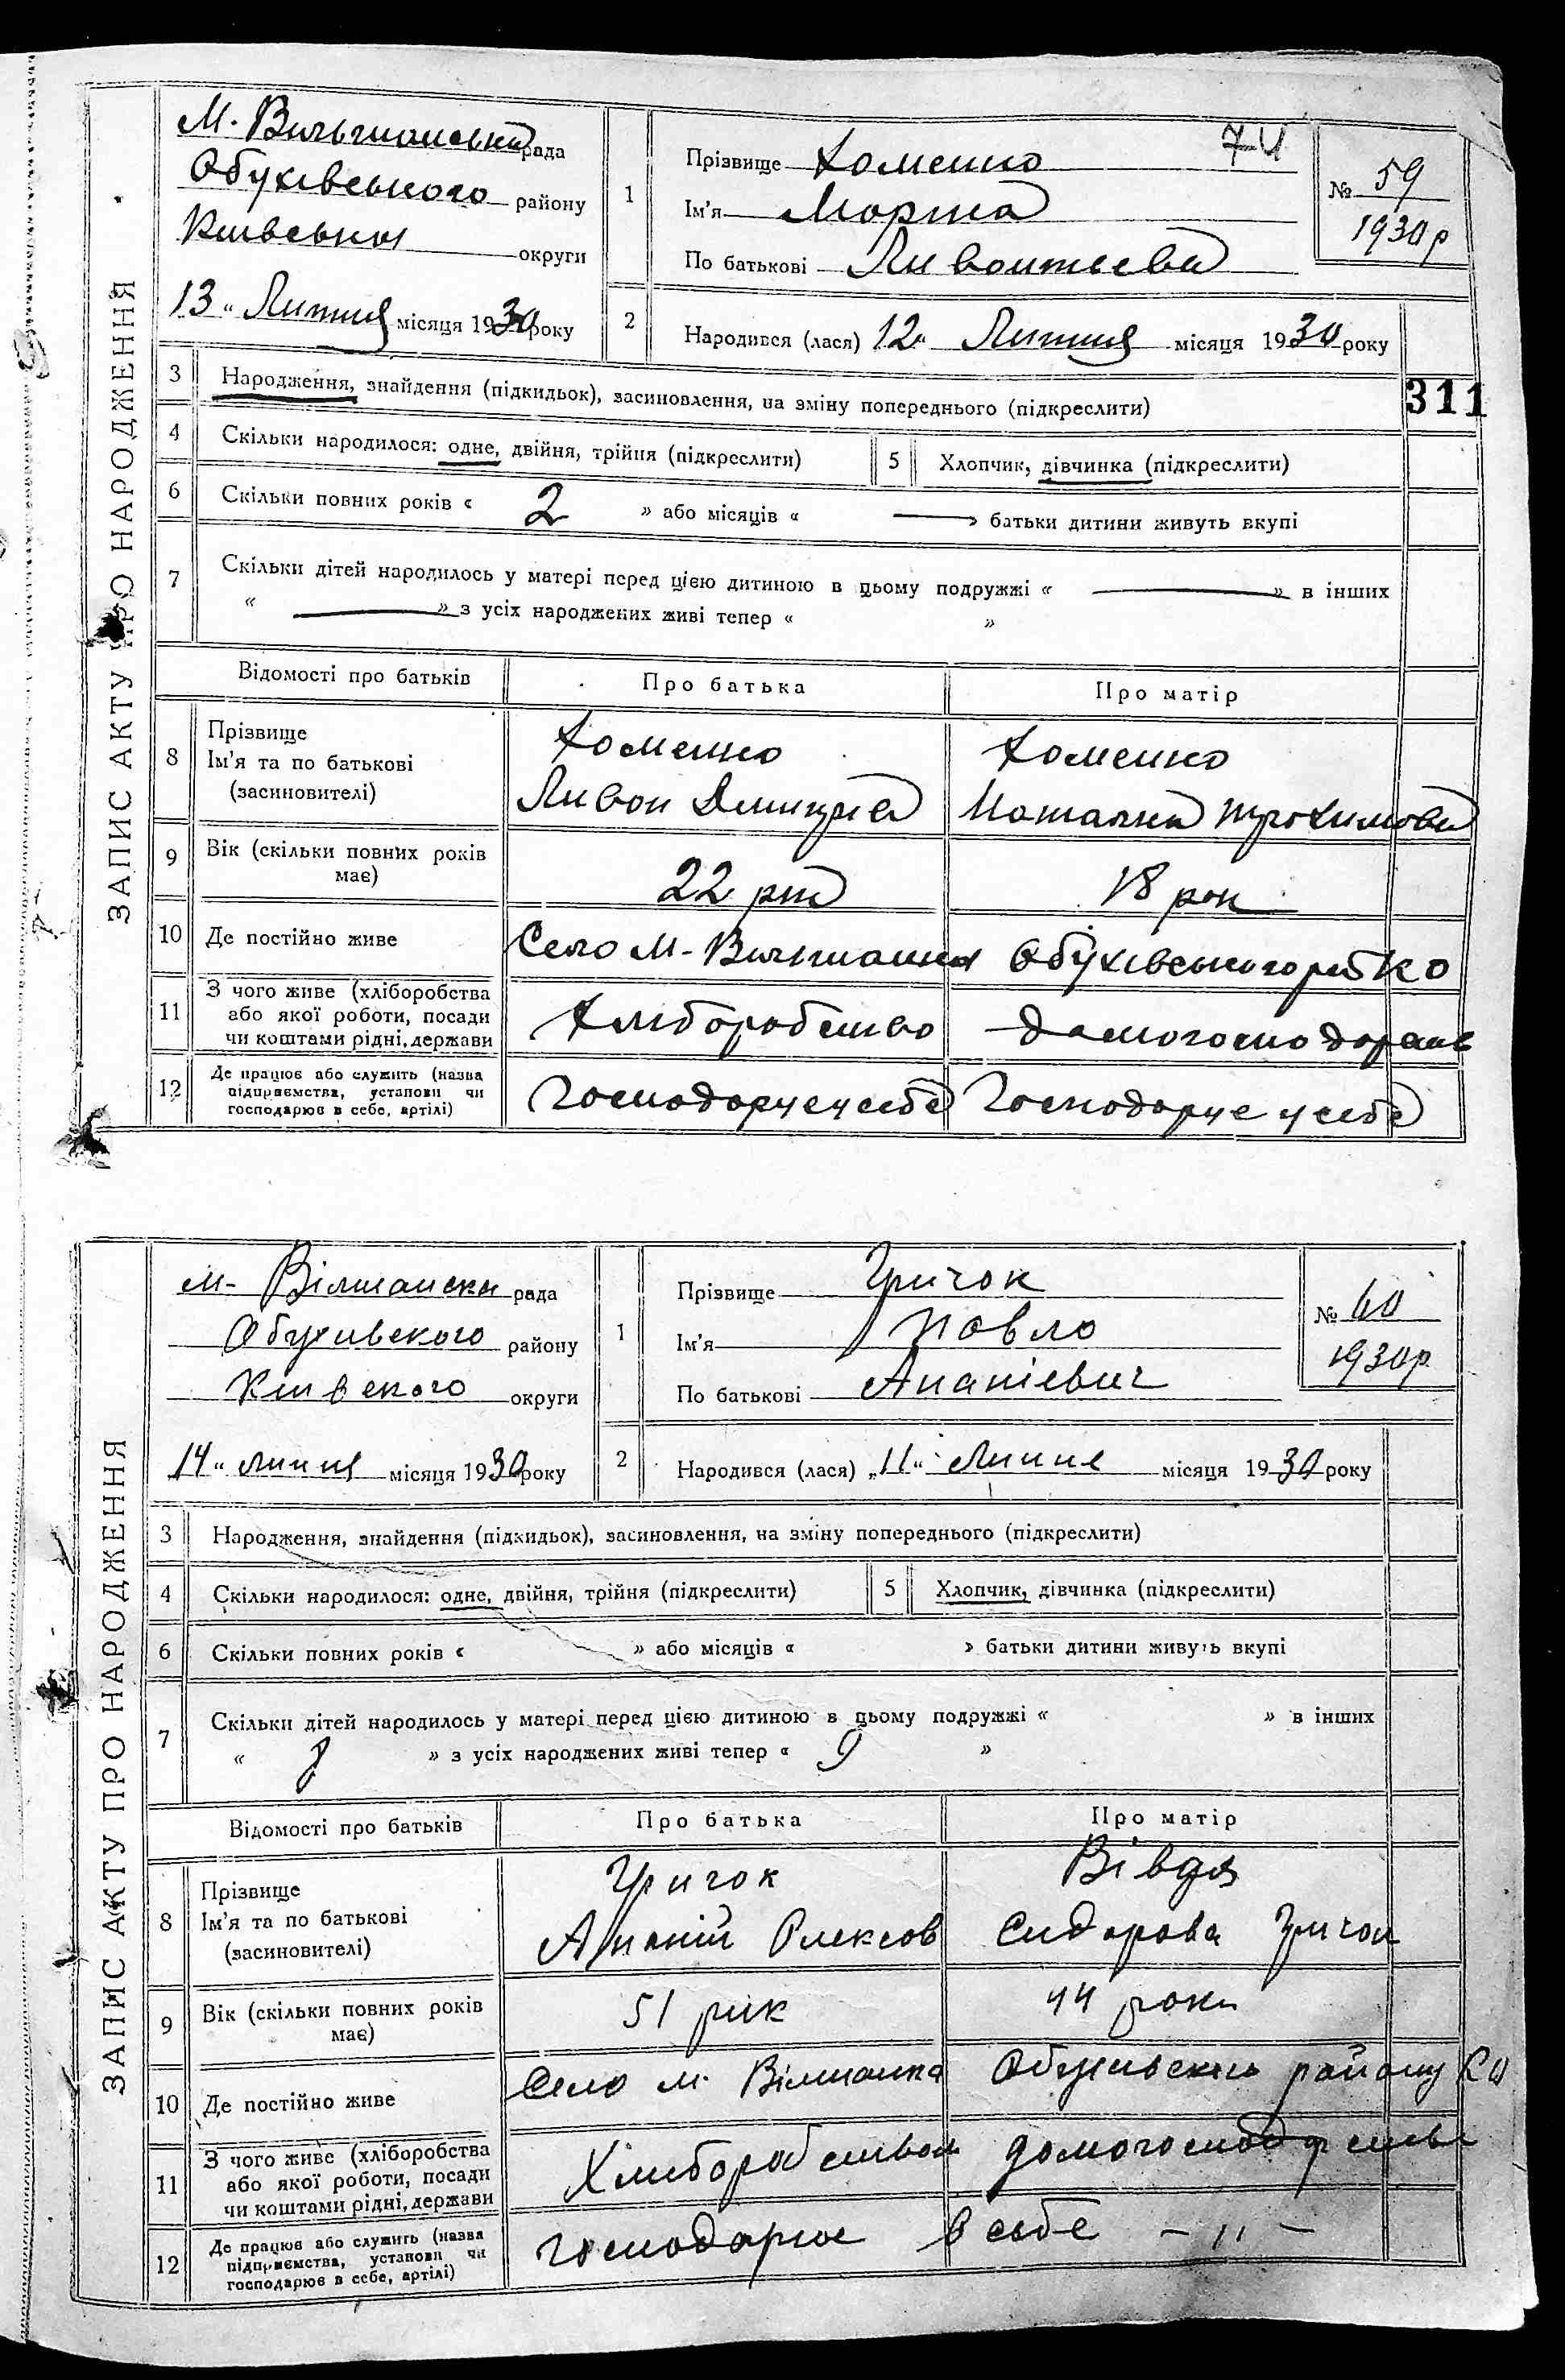 ЗАПИС АКТУ ПРО НАРОДЖЕННЯ
М. Вильшанська рада
Обухівського району
Київської округи
13 „ Липня місяця 1930 року
1
Прізвище Хоменко
Ім'я Марта
По батькові Ливонтьева
№ 59
1930 р
2
Народився (лася) 12 „ Липня місяця 1930 року
311
3 Народження, знайдення (підкидьок), засиновлення, на зміну попереднього (підкреслити)
4 Скільки народилося: одне, двійня, трійня (підкреслити)
5 Хлопчик, дівчинка (підкреслити)
6 Скільки повних років « 2 » або місяців « — » батьки дитини живуть вкупі
7 Скільки дітей народилось у матері перед цією дитиною в цьому подружжі « — » в інших
« — » з усіх народжених живі тепер « »
Відомості про батьків Про батька Про матір
8 Прізвище
Ім'я та по батькові
(засиновителі)
Хоменко
Ливон Дмитрів
Хоменко
Наталка Трохимова
9 Вік (скільки повних років
має)
22 рік
18 рок
10 Де постійно живе
Село М-Вильшанка Обухівського рай КО
11 З чого живе (хліборобства
або якої роботи, посади
чи коштами рідні, держави
Хліборобство
12 Де працює або служить (назва
підприємства, установи чи
господарює в себе, артілі)
Господарчеусебе Господарче у себе
ЗАПИС АКТУ ПРО НАРОДЖЕННЯ
м- Вілшанска рада
Обухивского району
Киівского округи
14 „ Липня місяця 1930 року
1
Прізвище Гричок
Ім'я Павло
По батькові Ананіевич
№ 60
1930р.
2
Народився (лася) „11" Липня місяця 1930 року
3 Народження, знайдення (підкидьок), засиновлення, на зміну попереднього (підкреслити)
4 Скільки народилося: одне, двійня, трійня (підкреслити)
5 Хлопчик, дівчинка (підкреслити)
6 Скільки повних років « » або місяців « » батьки дитини живуть вкупі
7 Скільки дітей народилось у матері перед цією дитиною в цьому подружжі « » в інших
« » з усіх народжених живі тепер « 9 »
Відомості про батьків Про батька Про матір
8 Прізвище
Ім'я та по батькові
(засиновителі)
Гричок
Ананій Олексов
Вівдя
Сидорова Гричок
9 Вік (скільки повних років
має)
51 рик
44 роки
10 Де постійно живе
Село м. Вілшанка Обухивского району КО
11 З чого живе (хліборобства
або якої роботи, посади
чи коштами рідні, держави
Хлиборобством
12 Де працює або служить (назва
підприємства, установи чи
господарює в себе, артілі)
господарює в себе – 〃 –